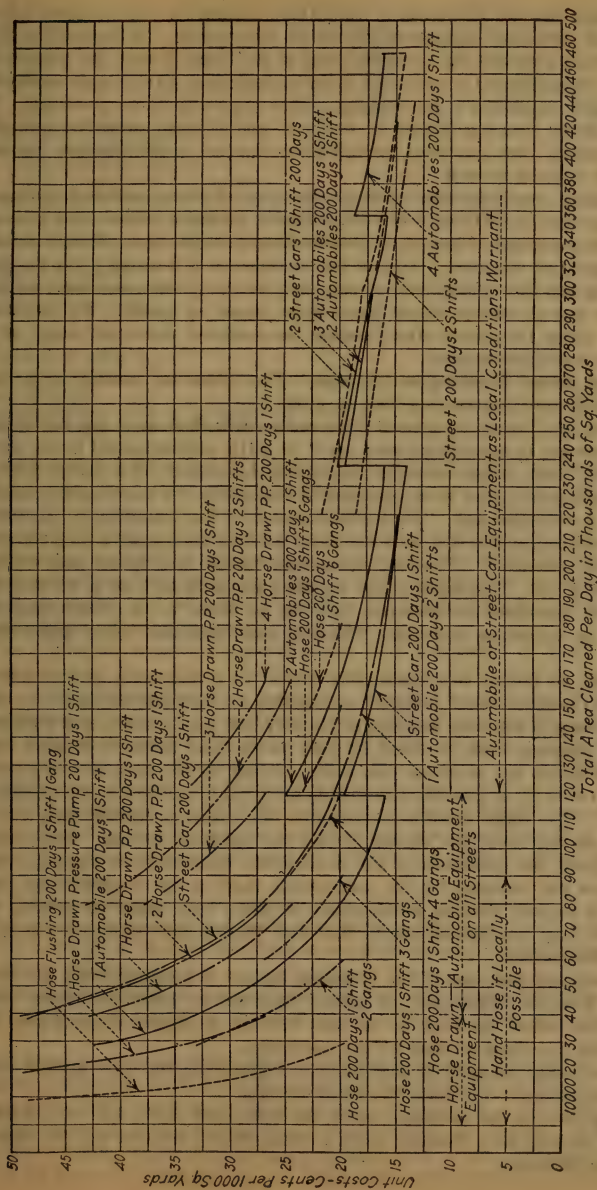 50
45
40
35
30
25
20
15
10
5
0
Unit Costs-Cents Per 1000 Sq. Yards
Hose Flushing 200 Days 1 Shift 1 Gang
Horse Drawn Pressure Pump 200 Days 1 Shift
1 Automobile 200 Days 1 Shift
1 Horse Drawn P.P. 200 Days 1 Shift
2 Horse Drawn P.P. 200 Days 1 Shift
Street Car 200 Days 1 Shift
3 Horse Drawn P.P. 200 Days 1 Shift
2 Horse Drawn P.P. 200 Days 2 Shifts
4 Horse Drawn P.P. 200 Days 1 Shift
2 Automobiles 200 Days 1 Shift
Hose 200 Days 1 Shift 5 Gangs
Hose 200 Days
1 Shift 6 Gangs
2 Street Cars 1 Shift 200 Days
3 Automobiles 200 Days 1 Shift
2 Automobiles 200 Days 1 Shift
4 Automobiles 200 Days 1 Shift
1 Street 200 Days 2 Shifts
Street Car 200 Days 1 Shift
1 Automobile 200 Days 2 Shifts
Hose 200 Days 1 Shift
2 Gangs
Hose 200 Days 1 Shift 3 Gangs
Hose 200 Days 1 Shift 4 Gangs
Horse Drawn
Equipment
Automobile Equipment
on all Streets
Automobile or Street Car Equipment as Local Conditions Warrant
Hand Hose if Locally
Possible
10000 20 30 40 50 60 70 80 90 100 110 120 130 140 150 160 170 180 190 200 210 220 230 240 250 260 270 280 290 300 320 340 360 380 400 420 440 460 460 500
Total Area Cleaned Per Day in Thousands of Sq. Yards